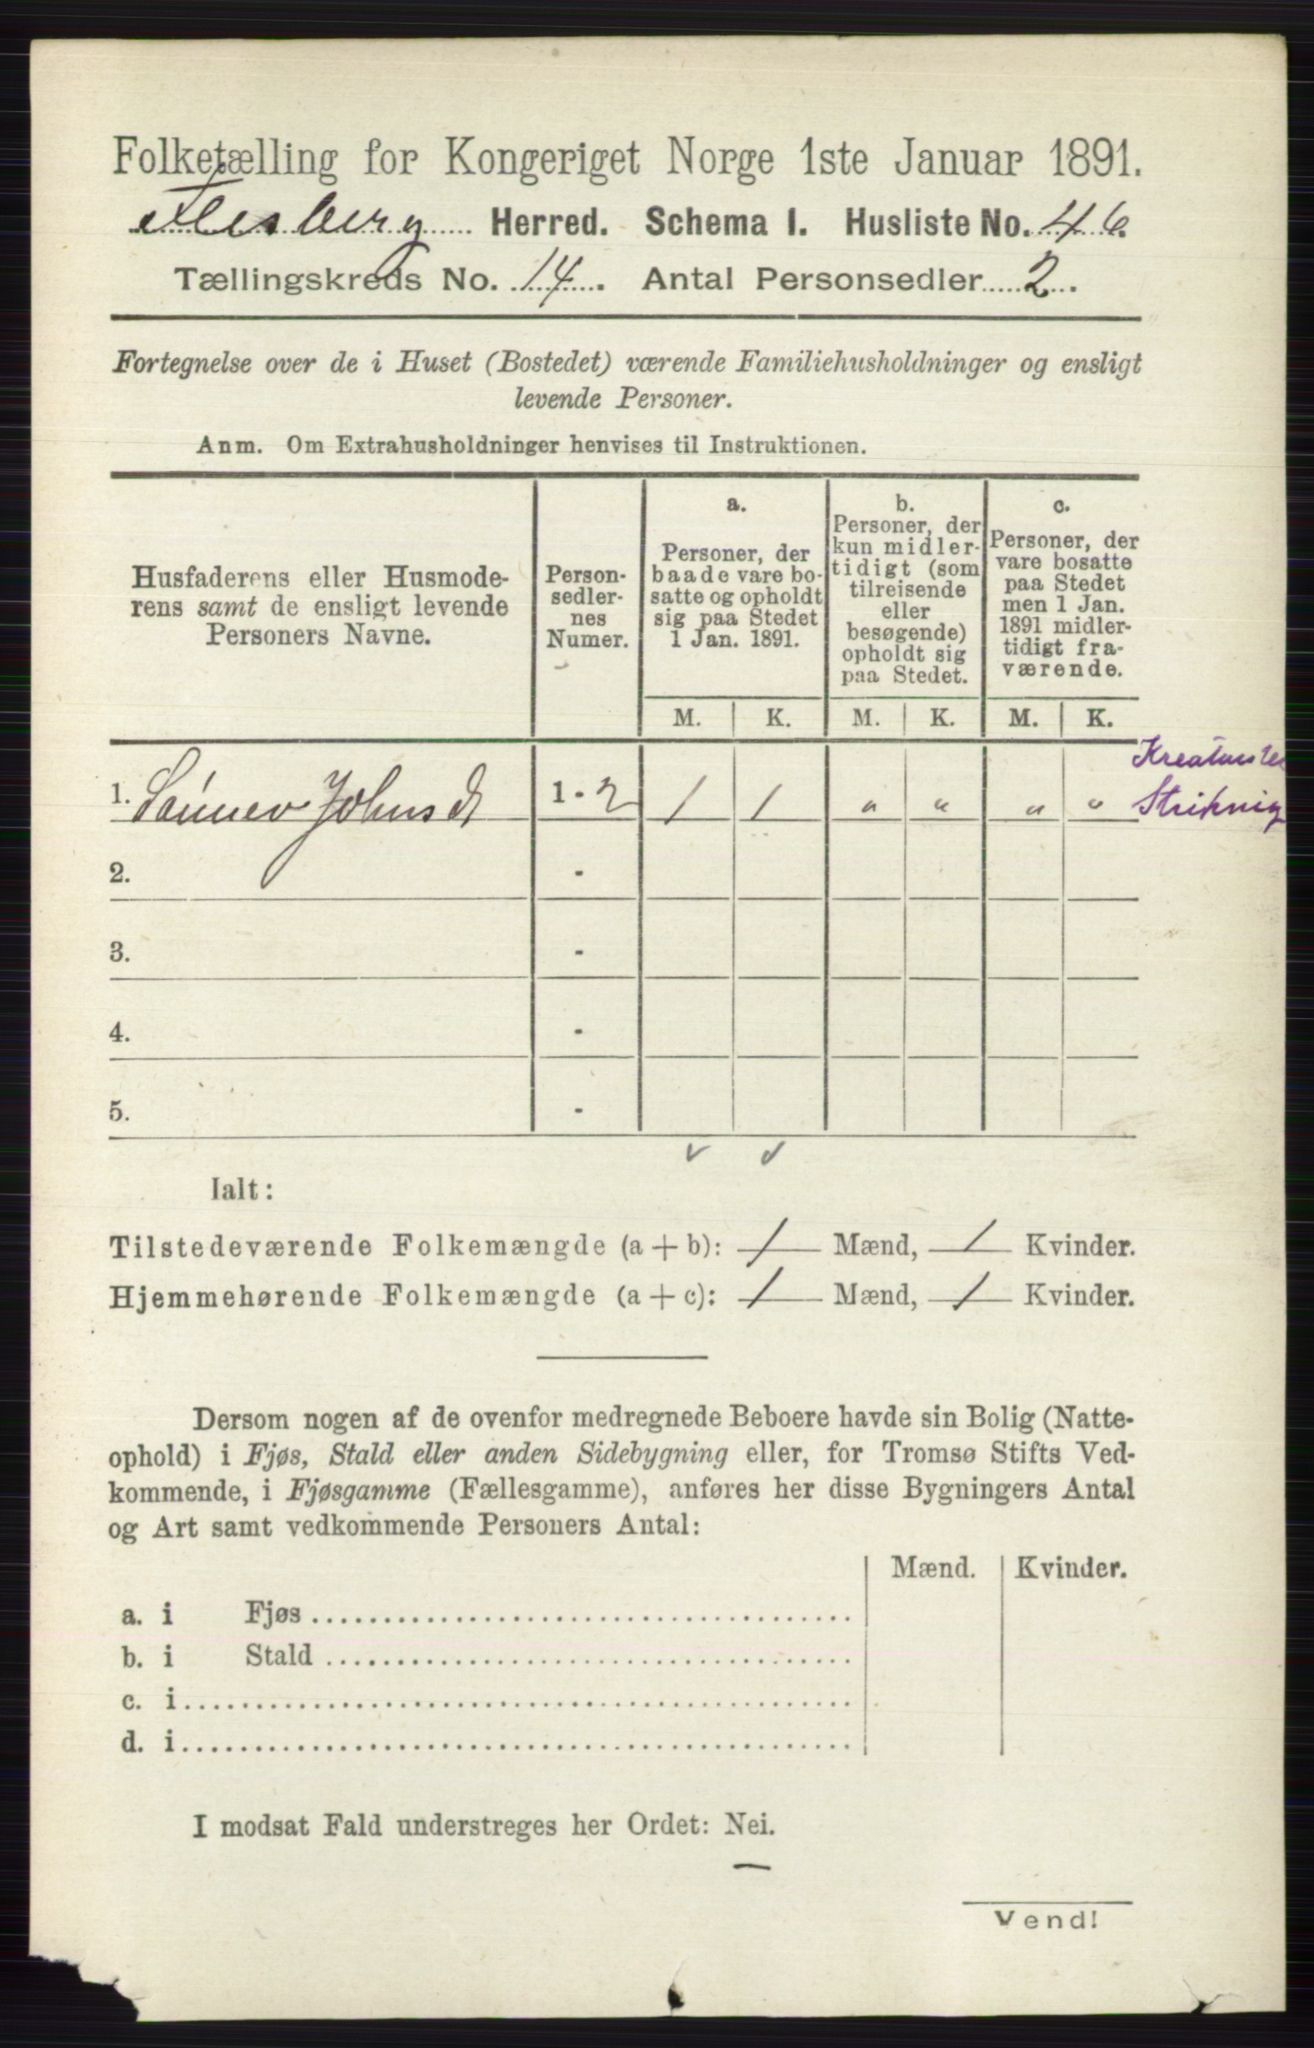 Folketælling for Kongeriget Norge 1ste Januar 1891.
Flesberg Herred. Schema I. Husliste No. 46.
Tællingskreds No. 14. Antal Personsedler 2.
Fortegnelse over de i Huset (Bostedet) værende Familiehusholdninger og ensligt
levende Personer.
Anm. Om Extrahusholdninger henvises til Instruktionen.
Husfaderens eller Husmode-
rens samt de ensligt levende
Personers Navne.
Person-
sedler-
nes
Numer.
a.
Personer, der
baade vare bo-
satte og opholdt
sig paa Stedet
1 Jan. 1891.
b.
Personer, der
kun midler-
tidigt (som
tilreisende
eller
besøgende)
opholdt sig
paa Stedet.
c.
Personer, der
vare bosatte
paa Stedet
men 1 Jan.
1891 midler-
tidigt fra-
værende.
M. K. M. K. M. K.
1. Johnsd 1-2 1 1 " " " "
Strikning
2. -
3. -
4. -
5. -
Ialt:
Tilstedeværende Folkemængde (a + b): 1 Mænd, 1 Kvinder.
Hjemmehørende Folkemængde (a + c): 1 Mænd, 1 Kvinder.
Dersom nogen af de ovenfor medregnede Beboere havde sin Bolig (Natte-
ophold) i Fjøs, Stald eller anden Sidebygning eller, for Tromsø Stifts Ved-
kommende, i Fjøsgamme (Fællesgamme), anføres her disse Bygningers Antal
og Art samt vedkommende Personers Antal:
Mænd. Kvinder.
a. i Fjøs
b. i Stald
c. i
d. i
I modsat Fald understreges her Ordet: Nei.
Vend!